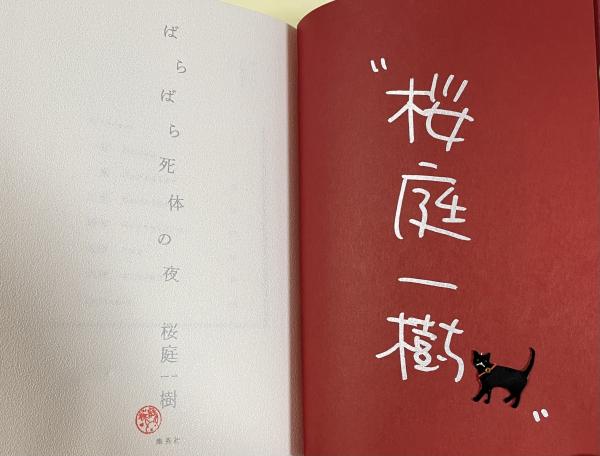 ばらばら死体の夜
桜庭一樹
集英社
〝桜庭一樹〟